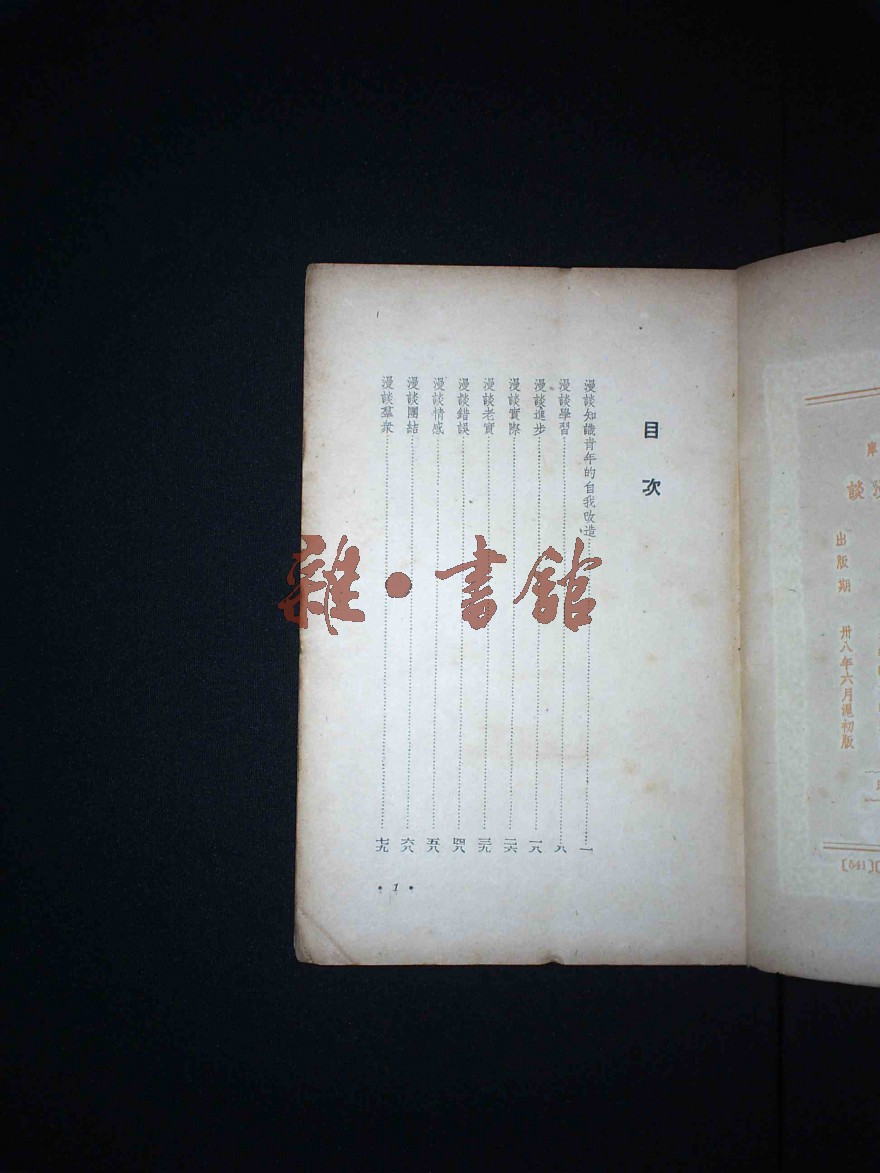 目次
漫談知識青年的自我改造……一
漫談學習……八
漫談進步……一八
漫談實際……二六
漫談老實……三九
漫談錯誤……四八
漫談情感……五八
漫談團結……六八
漫談羣眾……七九
• 1 •
雜•書館
談
出版期 卅八年六月滬初版